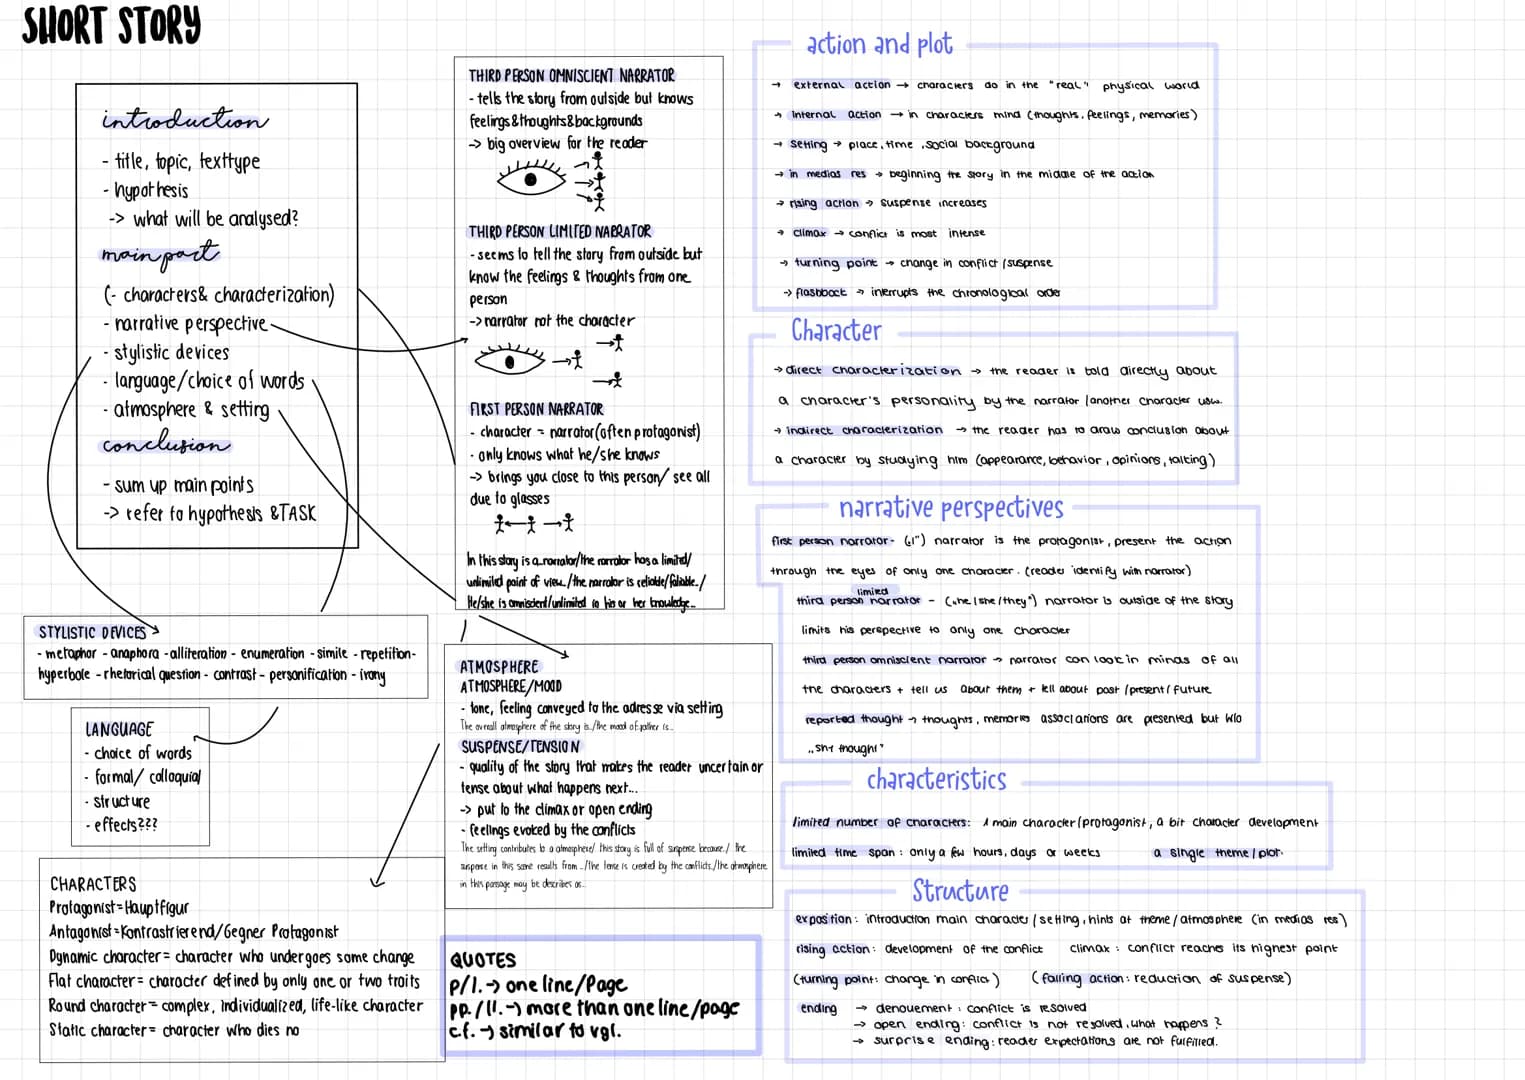 SHORT STORY
introduction
- title, topic, texttype
- hypothesis
-> what will be analysed?
main part
(- characters& characterization)
- narrative perspective
- stylistic devices
- language/choice of words
- atmosphere & setting
conclusion
- sum up main points
-> refer to hypothesis &TASK
STYLISTIC DEVICES
- metaphor - anaphora - alliteration - enumeration - simile - repetition-
hyperbole - rhetorical question - contrast - personification - irony
LANGUAGE
- choice of words
- formal/ colloquial
- structure
- effects???
CHARACTERS
Protagonist=Hauptfigur
Antagonist=Kontrastrierend/Gegner Protagonist
Dynamic character= character who undergoes some change
Flat character= character defined by only one or two traits
Round character= complex, individualized, life-like character
Static character= character who dies no
THIRD PERSON OMNISCIENT NARRATOR
- tells the story from outside but knows
feelings&thoughts&backgrounds
-> big overview for the reader
THIRD PERSON LIMITED NARRATOR
- seems to tell the story from outside but
know the feelings & thoughts from one
person
-> narrator not the character
FIRST PERSON NARRATOR
- character = narrator(often protagonist)
- only knows what he/she knows
-> brings you close to this person/ see all
due to glasses
In this story is a narrator/the narrator has a limited/
unlimited point of view../the narrator is reliable/
He/she is omniscient/unlimited in his or her knowledge...
ATMOSPHERE
ATMOSPHERE/MOOD
- tone, feeling conveyed to the adresse via setting
The overall atmosphere of the story is../the mood of rather is...
SUSPENSE/TENSION
- quality of the story that makes the reader uncertain or
tense about what happens next...
-> put to the climax or open ending
- feelings evoked by the conflicts
The setting contributes to a atmosphere/ this story is full of suspense because../ the
suspense in this scene results from ../the tense is created by the conflicts./the atmosphere
in this passage may be describes as...
QUOTES
p/l. -> one line/Page
pp./ll. -> more than one line/page
c.f. -> similar to vgl.
action and plot
→ external action → characters do in the "real" physical world
→ internal action → in characters mind (thoughts, feelings, memories)
→ setting → place, time, social background
→ in medias res → beginning the story in the middle of the action
→ rising action → suspense increases
→ climax → conflict is most intense
→ turning point → change in conflict /suspense
→ flashback → interrupts the chronological order
Character
→ direct characterization → the reader is told directly about
a character's personality by the narrator /another character usw.
→ indirect characterization → the reader has to draw conclusion about
a character by studying him (appearance, behavior, opinions, talking)
narrative perspectives
first person narrator - („I") narrator is the protagonist, present the action
through the eyes of only one character. (reader identify with narrator)
limited
third person narrator - („he/she/they") narrator is outside of the story
limits his perspective to only one character
third person omniscient narrator → narrator can look in minds of all
the characters + tell us about them + tell about past /present/ future
reported thought → thoughts, memories associations are presented but w/o
„she thought"
characteristics
limited number of characters: 1 main character/protagonist, a bit character development
limited time span: only a few hours, days or weeks a single theme/plot.
Structure
exposition: introduction main character/setting, hints at theme/atmosphere (in medias res)
rising action: development of the conflict climax: conflict reaches its highest point
(turning point: change in conflict) (falling action: reduction of suspense)
ending → denouement: conflict is resolved
→ open ending: conflict is not resolved, what happens?
→ surprise ending: reader expectations are not fulfilled.